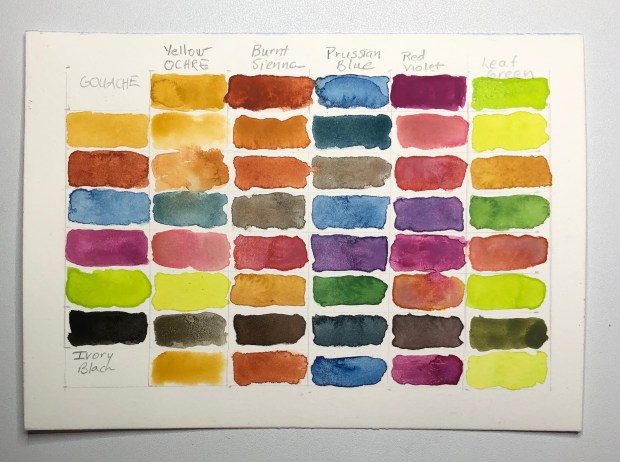 GOUACHE
Yellow
OCHRE
Burnt
Sienna
Prussian
Blue
Red
Violet
Leaf
Green
Ivory
Black